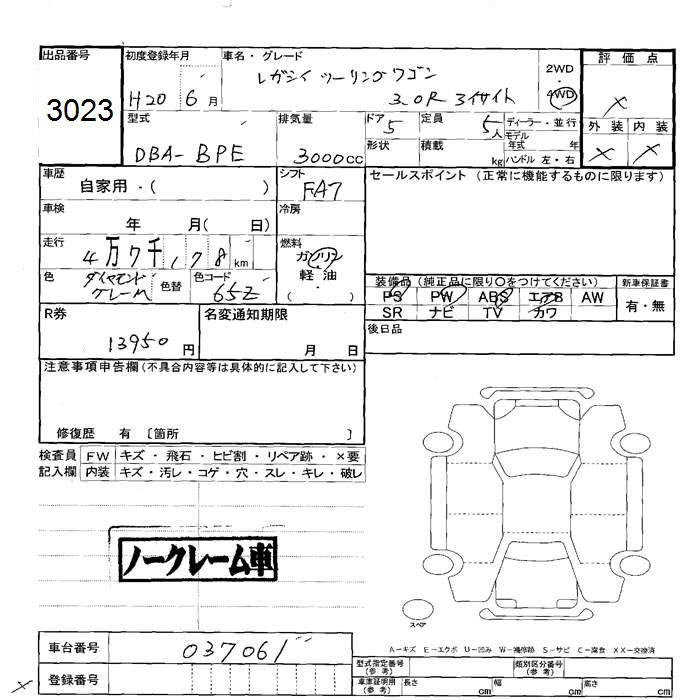 出品番号
3023
初度登録年月
H20 6月
車名・グレード
レガシイ ツーリングワゴン
3.0R アイサイト
2WD
4WD
評価点
×
外装 内装
× ×
型式
DBA-BPE
排気量
3000cc
ドア 5
形状
定員 5人
積載 kg
ディーラー・並行
モデル
年式 年
ハンドル 左・右
車歴
自家用・( )
シフト
FA7
セールスポイント (正常に機能するものに限ります)
車検
年 月( 日)
冷房
走行
4万7千178km
燃料
ガソリン
軽油
( )
色
ダイヤモンド
グレーM
色替
色コード
65Z
装備品(純正品に限り○をつけてください)
PS PW ABS エアB AW
SR ナビ TV カワ
新車保証書
有・無
R券
13950円
名変通知期限
月 日
後日品
注意事項申告欄(不具合内容等は具体的に記入して下さい)
修復歴 有 〔箇所 〕
検査員 FW キズ・飛石・ヒビ割・リペア跡・×要
記入欄 内装 キズ・汚レ・コゲ・穴・スレ・キレ・破レ
ノークレーム車
スペア
A-キズ E-エクボ U-凹み W-補修跡 S-サビ C-腐食 XX-交換済
車台番号
037061
登録番号
×
型式指定番号
(参考)
類別区分番号
(参考)
車庫証明用
(参考)
長さ cm 幅 cm 高さ cm